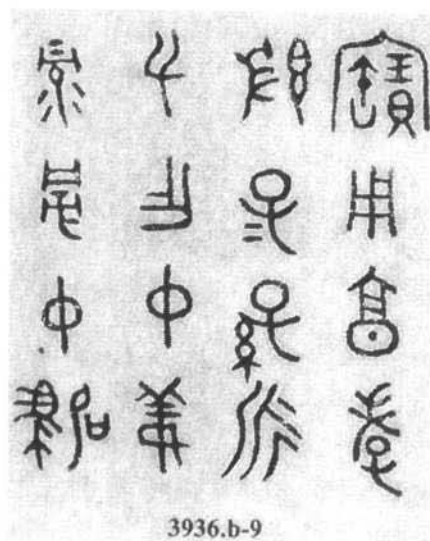 录旁中駒
父乍中姜
𣪘子=孫永
寶用享孝
3936.b-9